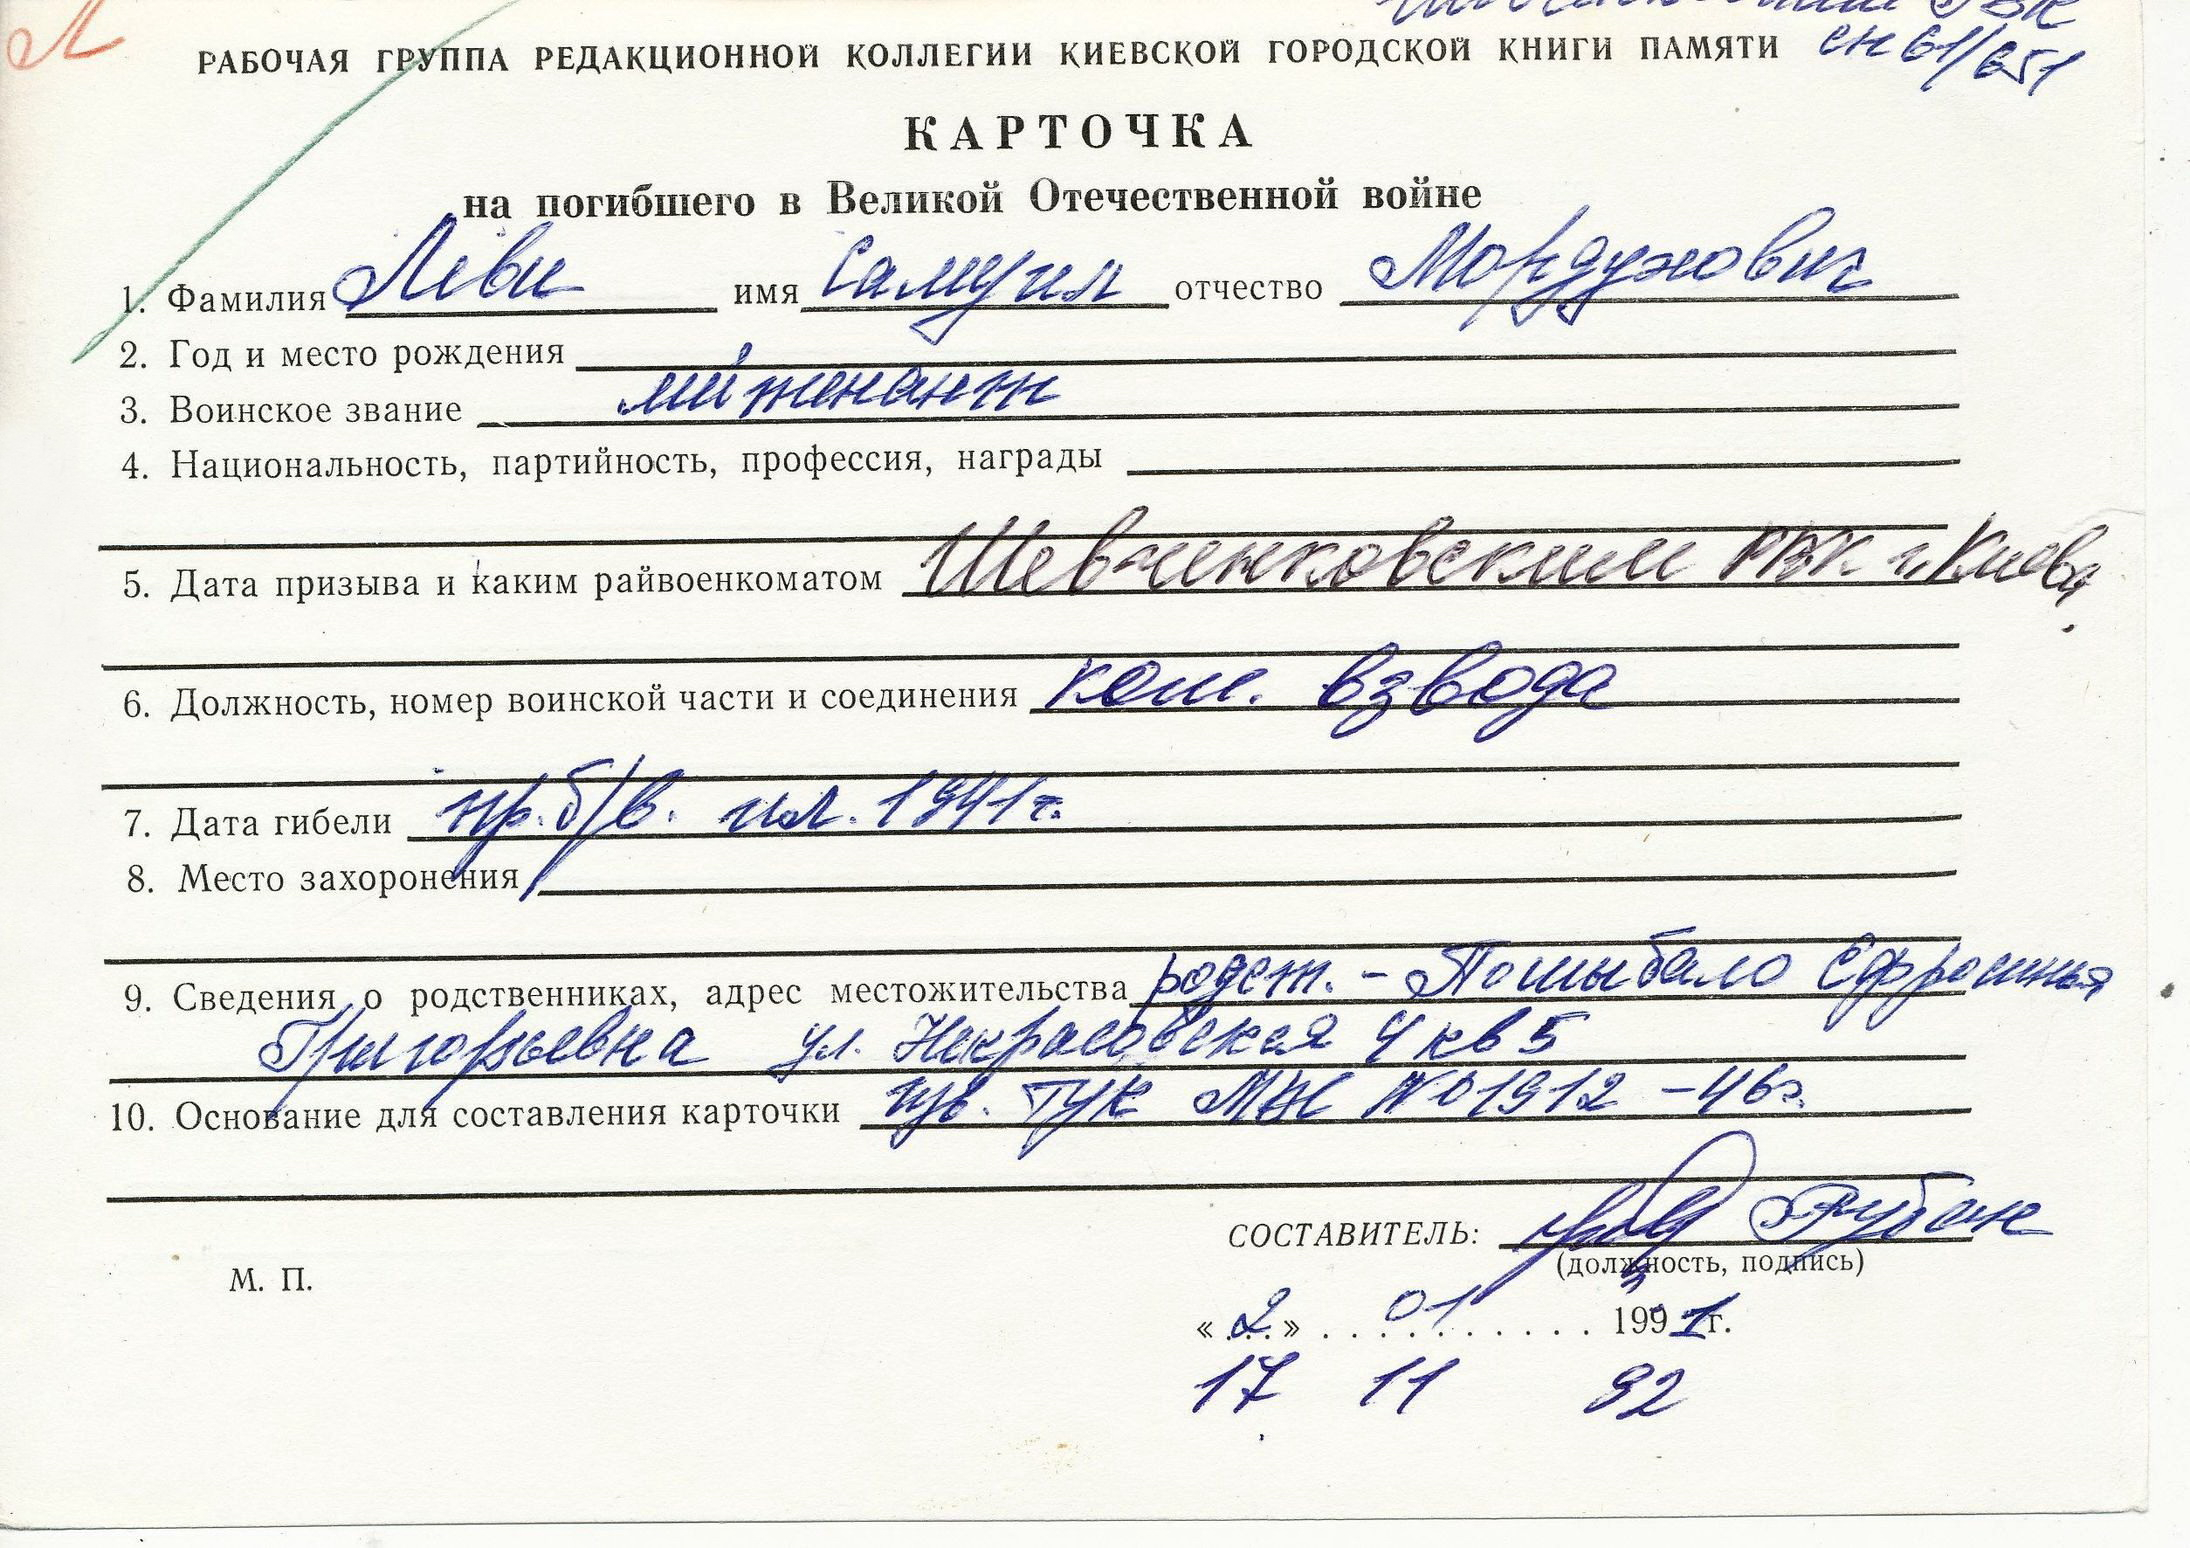 Л
РВК
РАБОЧАЯ ГРУППА РЕДАКЦИОННОЙ КОЛЛЕГИИ КИЕВСКОЙ ГОРОДСКОЙ КНИГИ ПАМЯТИ сн 61/651
КАРТОЧКА
на погибшего в Великой Отечественной войне
1. Фамилия Леви имя Самуил отчество Мордухович
2. Год и место рождения
3. Воинское звание лейтенант
4. Национальность, партийность, профессия, награды
5. Дата призыва и каким райвоенкоматом Шевченковским РВК г. Киева
6. Должность, номер воинской части и соединения ком. взвода
7. Дата гибели пр. б/в. 1941 г.
8. Место захоронения
9. Сведения о родственниках, адрес местожительства родст. - Пошыбало Ефросинья
Григорьевна ул. Некрасовская 4 кв 5
10. Основание для составления карточки ГУК №01912 - 46 г.
СОСТАВИТЕЛЬ: Рубан
(должность, подпись)
М. П.
« 2 » 01 1991 г.
17 11 92